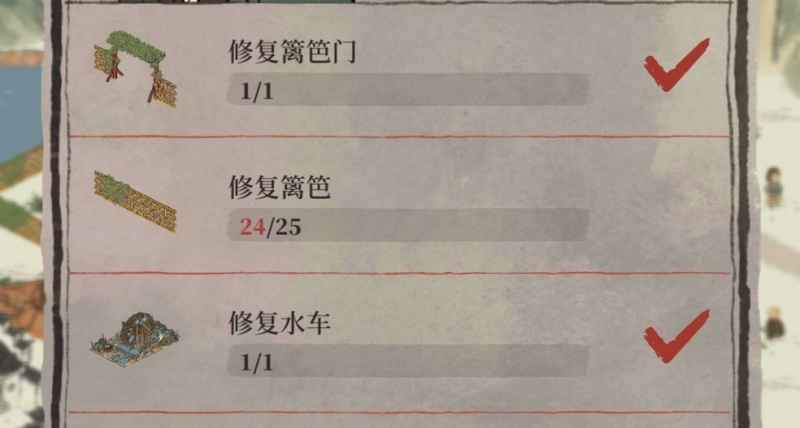 修复篱笆门
1/1
修复篱笆
24/25
修复水车
1/1